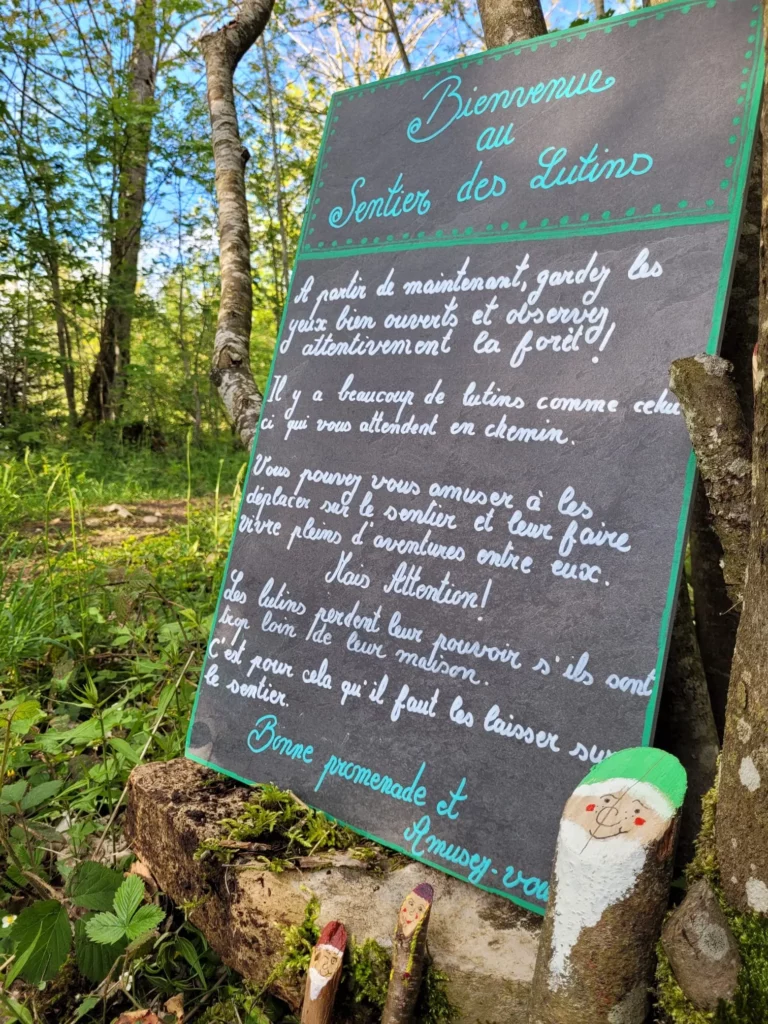 Bienvenue
au
Sentier des Lutins
A partir de maintenant, gardez les
yeux bien ouverts et observez
attentivement la forêt !
Il y a beaucoup de lutins comme celui
ci qui vous attendent en chemin.
Vous pouvez vous amuser à les
déplacer sur le sentier et leur faire
vivre pleins d'aventures entre eux.
Mais Attention!
Les lutins perdent leur pouvoir s'ils sont
trop loin de leur maison.
C'est pour cela qu'il faut les laisser sur
le sentier.
Bonne promenade et
Amusez-vous